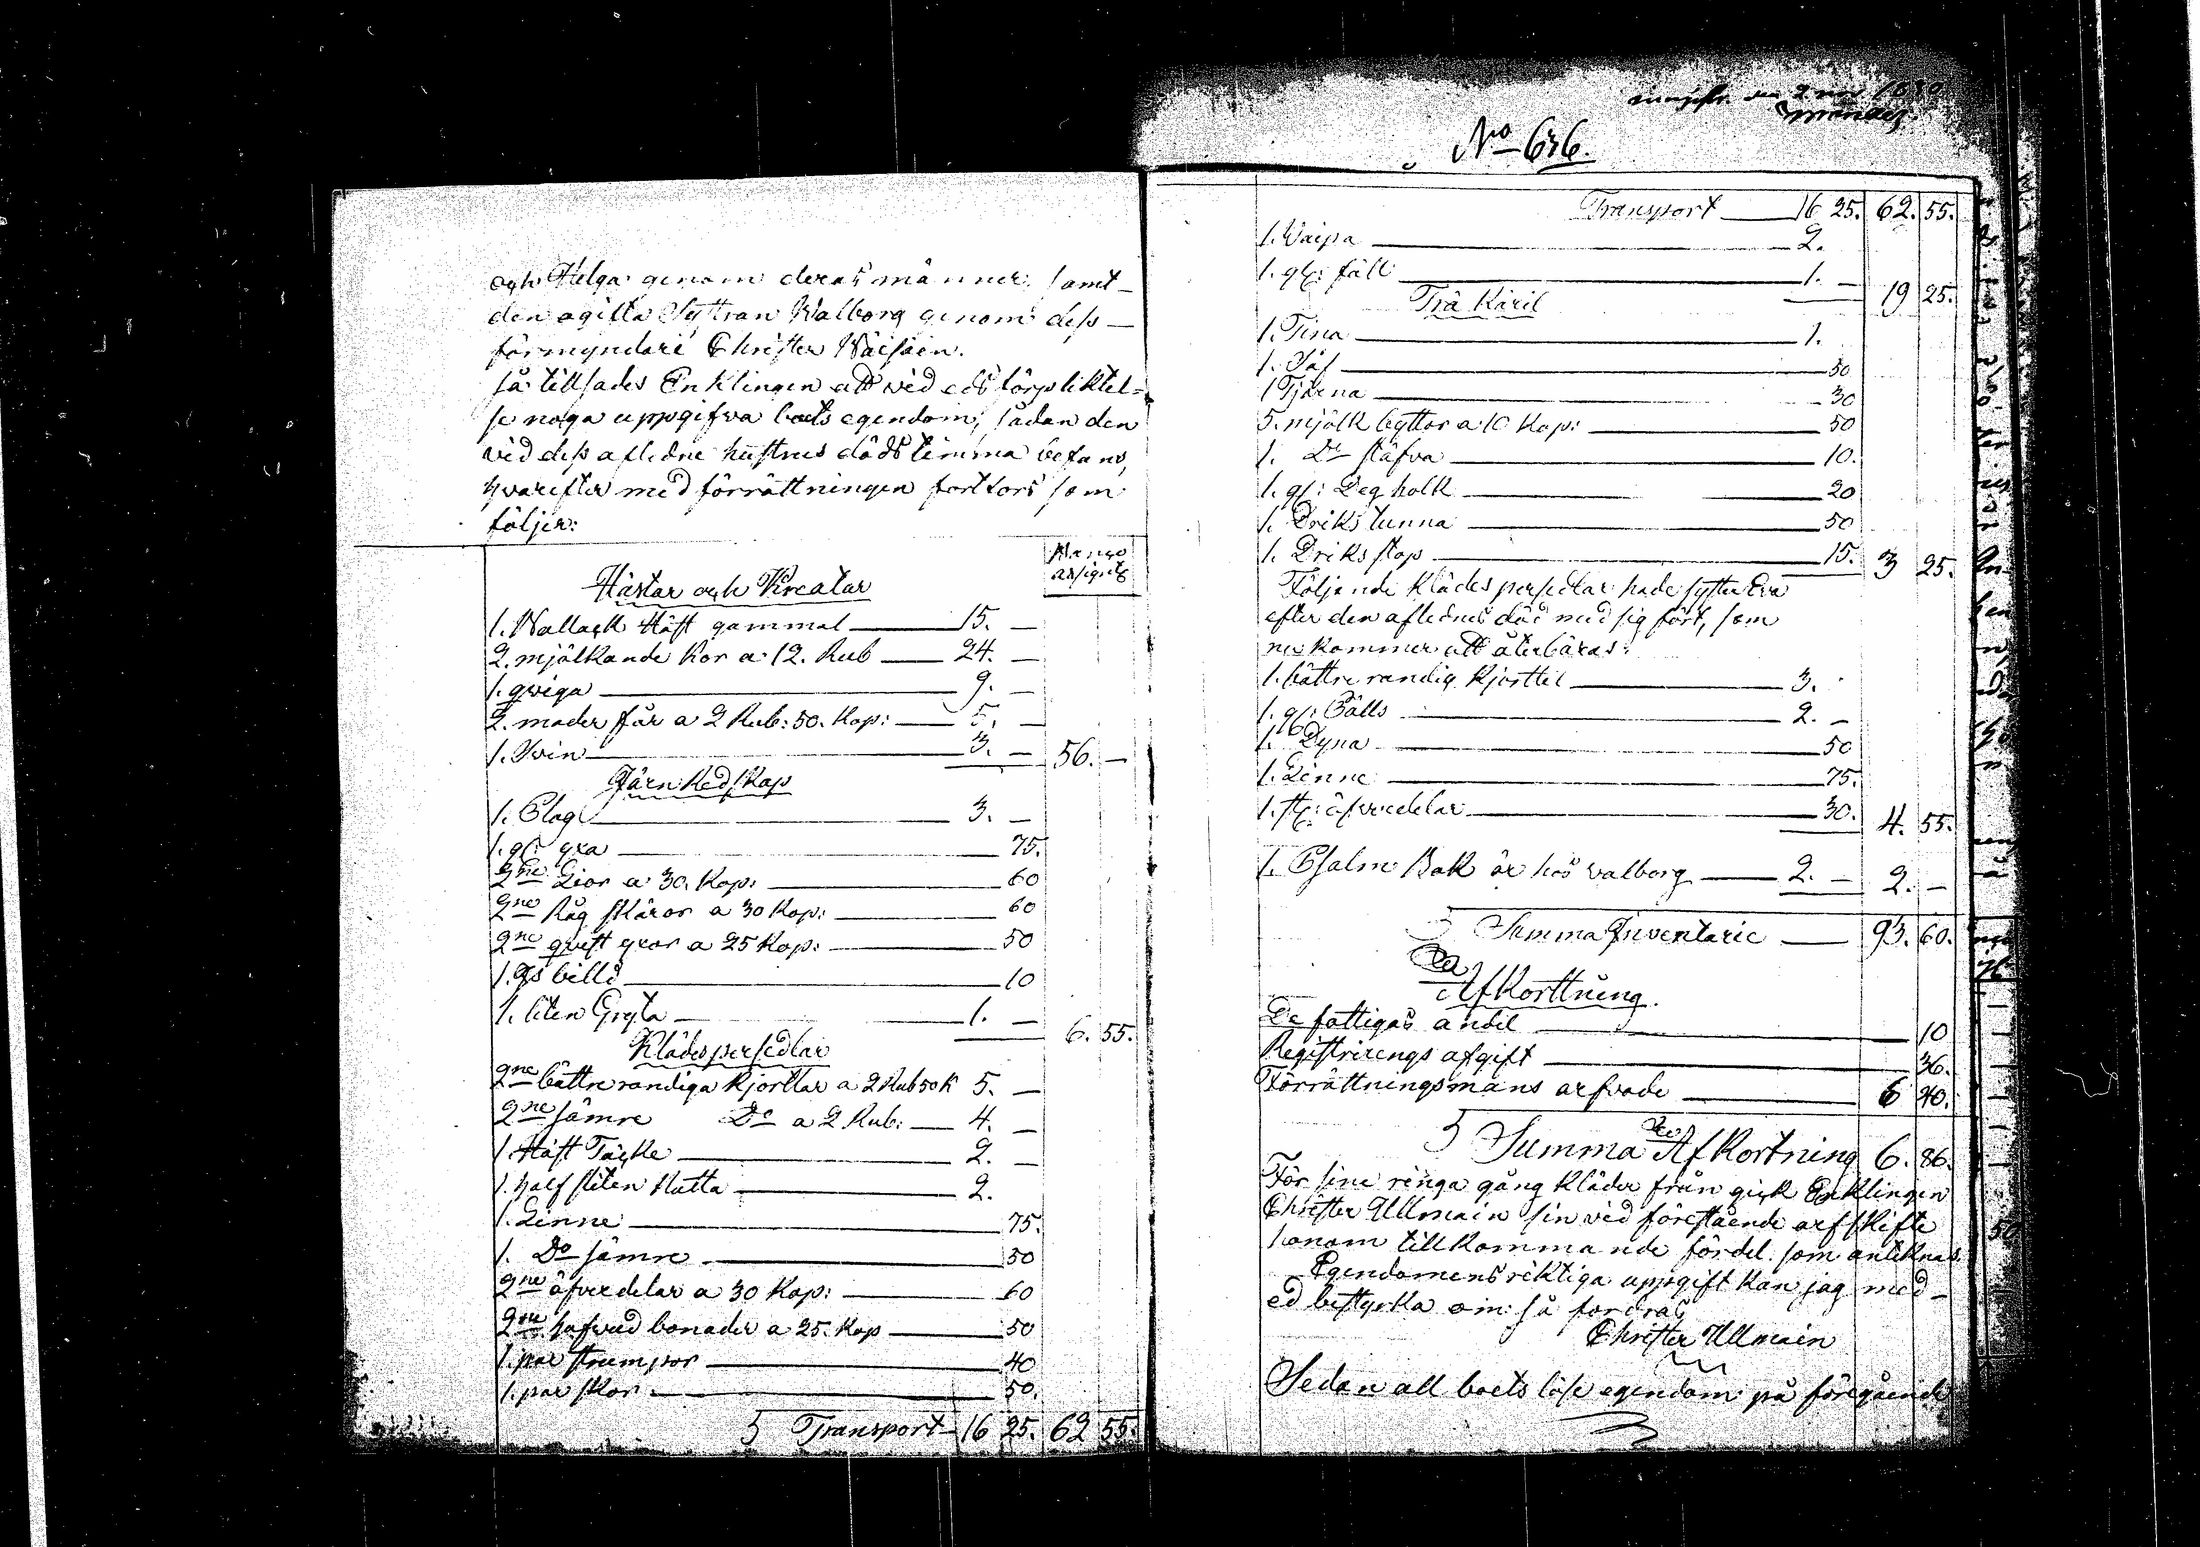 och Helga genom deras männer, samt
den ogifta Systran Walborg genom dess
förmyndare Christer Wäisäin.
så tillsades Enklingen att vid eds förpliktel-
se noga uppgifva boets egendom, sådan den
vid dess afledne hustrus dödstimma befans,
hvarefter med förrättningen fortfors som
följer:
Banco
assignts
Hästar och Kreatur
1. Wallack Häst gammal 15. —
2. mjölkande Kor a 12. Rub 24. —
1. qviga 9. —
2. moder får a 2 Rub: 50. Kop: 5. —
1. Svin 3. — 56. —
Järn Redskap
1. Plog 3. —
1. gl: yxa 75.
2ne Lior a 30. Kop: 60
2ne Råg skäror a 30 Kop: 60
2ne qvist yxor a 25 Kop: 50
1. bill 10
1. liten Gryta 1. — 6. 55.
Klädes persedlar
2ne bättre randiga kjortlar a 2 Rub 50 K 5. —
2ne sämre Do a 2 Rub: 4. —
1 Häst Täcke 2. —
1. half sliten Matta 2.
1. Linne 75.
1. Do sämre 50
2ne öfverdelar a 30 Kop: 60
2ne hufvud bonader a 25. Kop 50
1. par strumpor 40
1. par skor 50.
Transport 16 25. 62 55.
No 636.
Transport 16 25. 62. 55.
1. Vaipa 2.
1. gl: fäll 1. — 19 25.
Trä Käril
1. Tina 1.
1. Såf 50
1 Tjärna 30
5. mjölk byttor a 10 Kop: 50
1. Do stäfva 10.
1. gl: Deg holk 20
1. Driks tunna 50
1. Driks stop 15. 3 25.
Följande Klädes persedlar hade syster Eva
efter den aflednes död med sig fört, som
nu kommer att återbäras:
1. bättre randig kjorttel 3.
1. gl: Pälls 2. —
1. Dyna 50
1. Linne 75.
1. st: öfverdelar 30. 4. 55.
1. Psalm Bok är hos valborg 2. — 2. —
Summa Inventarie 93. 60.
Afkorttning.
De fattigas andel 10
Registrirings afgift 36.
Förrättningsmans arfvode 6 40.
Summa Afkortning 6. 86.
För sine ringa gång kläder från gick Enklingen
Christer Ullmain sin vid förestående arfskifte
honom tillkommande fördel. som anteknas.
Egendomens riktiga uppgift kan jag med
ed bestyrka om så fordras
Christer Ullmain
Sedan all boets löse egendom på föregående